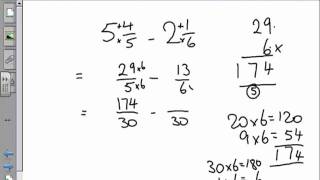 5 + 4/5 × - 2 + 1/6 ×
= 29 ×6 / 5 ×6 - 13/6
= 174/30 - /30
29.
6 ×
174
5
20 x 6 = 120
9 x 6 = 54
174
30 x 6 = 180